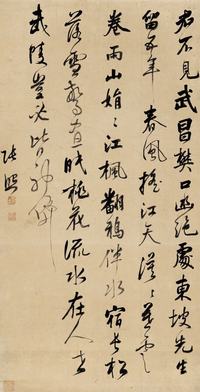 君不見武昌樊口幽絕處東坡先生
留五年春風搖江天漠漠暮雲
卷雨山娟娟江楓翻鴉伴水宿長松
落雪驚晝眠桃花流水在人世
武陵豈必皆神僊
張照